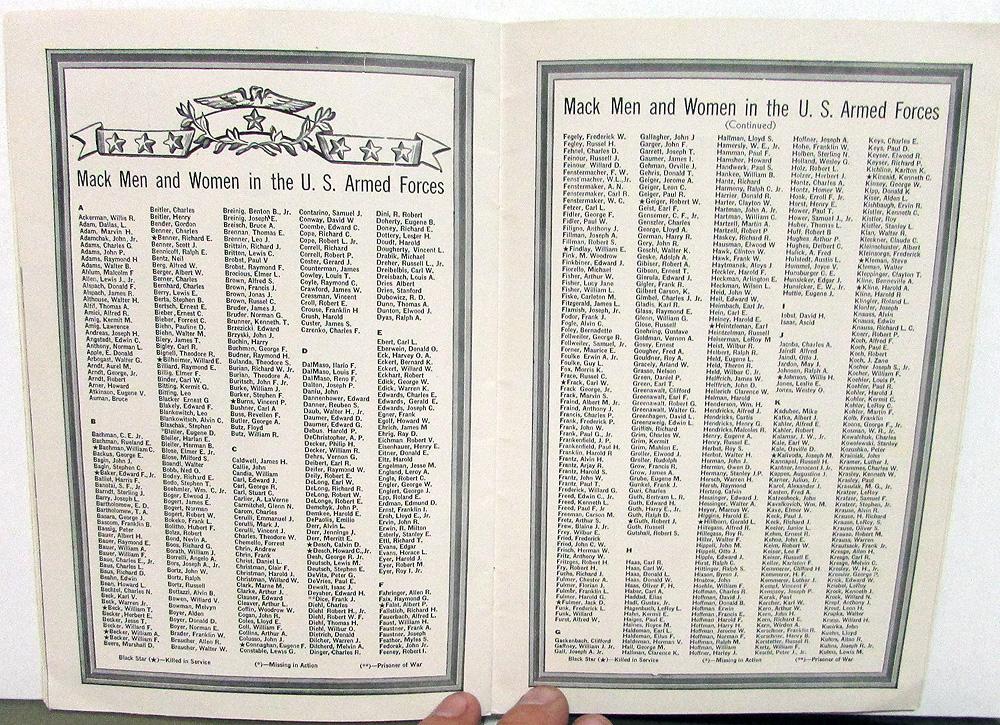 Mack Men and Women in the U. S. Armed Forces
A
Ackerman, Willis R.
Adam, Dallas, L.
Adam, Marvin H.
Adamchak, John, Jr.
Adams, Charles G.
Adams, John P.
Adams, Raymond H
Adams, Walter B.
Ahlum, Malcolm F
Allen, Lewis J., Jr.
Alspach, Donald F.
Alspach, James R.
Althouse, Walter H.
Altif, Thomas A.
Amici, Alfred R.
Amig, Kermit M.
Amig, Lawrence
Andreas, Joseph H.
Angstadt, Edwin C.
Anthony, Norman L.
Apple, E. Donald
Arbogast, Walter G.
Arndt, Aurel M.
Arndt, George, Jr.
Arndt, Robert
Arner, Howard
Arkinson, Eugene V.
Auman, Bruce
B
Bachman, C. E. Jr.
Bachman, Rueland E.
★Bachman, William C.
Backus, George E.
Bagin, John S.
Bagin, Stephen C.
★Baker, Edward F., Jr.
Balliet, Harris F.
Barndt, Sterling J.
Barry, Joseph L.
Bartholomew, E. D.
Bartholomew, T. A.
Basara, George J.
Bascom, Franklin B.
Bassig, Peter
Bauer, Albert H.
Bauer, Raymond E.
Bauer, William A.
Bauer, William F.
Baus, Charles E., Jr.
Baus, Richard D.
Beahn, Edwin
Bean, Howard
Bechtel, Charles N.
Beck, Karl V.
Beck, Warren Jr.
★Beck, William T.
Becker, Herbert L.
Becker, Jesse T.
Becker, Willard E.
★Becker, William A.
★Becker, William F.
Beers, Marshall D.
Beitler, Charles
Beitler, Henry
Bender, Gordon
Benner, Charles
★Benner, Richard E.
Benner, Scott J.
Benninoff, Ralph E.
Bentz, Neil
Berg, Alfred W.
Berger, Albert W.
Berner, Charles
Bernhard, Charles
Berry, Lewis E.
Berta, Stephen B.
Bertsch, Ernest E.
Bieber, Ernest C
Bieber, Forrest C.
Biehn, Pauline D.
Biehn, Walter M.
Biery, James T.
Bigley, Carl R.
Bignell, Theodore R.
★Bilheimer, Willard E.
Billiard, Raymond E.
Billig, Elmer F.
Binder, Carl W.
Bitting, Kermit G.
Bitting, Leo
Blacker Ernest G
Blakely, Edward F.
Blankowitch, Leo
Blankowitsch, Alvin C.
Blaschak, Stephen
Bleiler, Harlan E.
Bleiler, Harman E.
Blose, Elmer E. Jr.
Blose, Milford S.
Boandl, Walter
Bobb, Ned O.
Bodey, Richard E.
Bodo, Stephen T.
Bogert, James E.
Bogert, Norman
Bogert, Robert W.
Bokeko, Frank L.
Bolitho, Hubert F.
Bolza, Robert
Bond, Nevin A.
Boos, Richard G.
Borath, William A.
Borrell, Angelo A.
Bors, Joseph A., Jr.
Bortz, John W.
Bortz, Ralph
Bortz, Russell
Bottazzi, Alvin B.
Bowen, Willard V.
Bowman, Melvyn
Boyer, Alden
Boyer, Donald D.
Boyer, Norman E.
Brader, Franklin W.
Braucher, Allen R.
Braucher, Walter W.
Breinig, Benton B., Jr.
Breinig, Joseph E.
Breisch, Bruce A.
Brennan, Thomas E.
Brenner, Leo J.
Brittain, Richard J
Britten, Lewis C.
Brobst, Paul V
Brobst, Raymond F.
Brocious, Elmer L.
Brown, Alfred S.
Brown, Francis J.
Brown, Jonas J.
Brown, Russel C.
Bruder, James J.
Bruder, Norman G.
Brunner, Kenneth T.
Brzezicki, Edward
Brzyski, John J.
Buchin, Harry
Buchman, George F.
Budner, Raymond H
Bulanda, Theodore S.
Burian, Richard W. Jr.
Burian, Theodore A.
Buritsch, John F. Jr.
Burke, William J.
Burker, Stephen F.
★Burns, Vincent P.
Bushner, Carl A
Buss, Revellen F.
Butler, George A.
Butz, Floyd
Butz, William R.
C
Caldwell, James H.
Callie, John
Candia, William
Carl, Edward J.
Carl, George R.
Carl, Stuart C.
Carlier, A. LaVerne
Carmitchel, Glenn N.
Caron, Charles
Cerulli, Emmanuel J.
Cerulli, Mark J.
Cerulli, Vincent J.
Charles, Theodore W.
Chemello, Forrest
Chrin, Andrew
Chrin, Frank
Christ, Daniel G.
Christman, Clair F.
Christman, Harold J.
Christman, Willard W.
Clark, Marne M.
Clarke, Arthur J.
Clauser, Edward
Cleaver, Arthur L.
Coffin, Woodrow W.
Cogan, John R.
Coles, Lloyd E.
Coll, William F.
Collina, Arthur A.
Colusso, John J.
★Conraughan, Eugene F.
Constable, Lewis G.
Contarino, Samuel J.
Conway, David W
Coombe, Edward C.
Cope, Richard C.
Cope, Robert L. Jr.
Correll, Richard
Correll, Robert P.
Coster, Gerard J.
Counterman, James
Cowley, Louis T.
Coyle, Raymond C.
Crawford, James W.
Cressman, Vincent
Croll, Robert E.
Crouse, Franklin H
Crush, Harold
Custer, James S.
Czrenko, Charles F.
D
DalMaso, Ilario F.
DalMaso, Louis F.
DalMaso, Reno F
Dalton, Joseph P.
Daniu, John
Dannenhower, Edward
Danner, Reuben S.
Daub, Walter H., Jr.
Daumer, Edward D.
Daumer, Edward G.
Debus, Harold P.
DeChristopher, A. P.
Decker, Philip M.
Decker, William R.
Dehrs, Vernon G.
Deibert, Earl R.
Deifer, Raymond W.
Deily, Robert E.
DeLong, Earl W.
DeLong, Richard R.
DeLong, Robert W.
DeLonge, Robert E.
Demchyk, John P.
Demkee, Harold E.
DePaolis, Emilio
Derr, Alvin A.
Derr, Jennings J.
Derr, Merritt E.
★Desch, Calvin D.
★Desch, Howard C., Jr.
Desh, George R., Jr.
Deutsch, Lewis M.
Deutsch, Stephen E.
DeVita, Peter G.
DeVries, Paul E.
Dewalt, Isaac J.
Deysher, Edward H.
**Dice, Frank J.
Diehl, Charles H.
Diehl, Robert H., Jr.
Diehl, Robert W.
Diehl, Thomas J.
Diehl, Wilbur C.
Dietrich, Donald
Dilcher, Warren J.
Ditcherd, Melvin A.
Dinger, Charles R.
Dini, R. Robert
Doherty, Eugene B.
Doney, Richard E.
Dottery, Lester H.
Doudt, Harold
Dougherty, Vincent L.
Drabik, Michael
Dreher, Russell L., Jr.
Dreibelbis, Carl W.
Dreisbach, Louis A.
Dries, Albert
Dries, Stanford
Dubowicz, R. D.
Dunn, Thomas A.
Dunton, Edward J.
Dyas, Ralph A.
E
Ebert, Carl L.
Eberwein, Donald O.
Eck, Harvey O. A.
Eckert, Bernard K.
Eckert, Willard W.
Eckhart, Robert
Edick, George W.
Edick, Warren K.
Edwards, Charles E.
Edwards, Gerald E.
Edwards, Joseph C.
Egner, Frank
Egolf, Howard W.
Ehrich, James M.
Ehrig, Roy D.
Eichman, Robert V.
Eisenhauer, Henry E.
Eitner, Donald E.
Eltz, Harold
Engelman, Jesse M.
England, LeRoy A.
Engle, Robert C.
Engler, George P.
Englert, George J.
Epp, Roland E.
Erdman, Edmund G.
Ernst, Franklin I.
Eroh, Lloyd E., Jr.
Ervin, John R.
Erwin, R. Milton
Esterly, Stanley E.
Etl, Richard S.
Evans, Edgar
Evans, Horace L.
Eyer, Harold J.
Eyer, Robert M.
Eyer, Roy I. Jr.
F
Fahringer, Allen R.
Faix, Raymond G.
★Falat, Albert P.
Fallstich, Richard H
Fatzinger, Alfred S.
Faust, William H.
Faustner, Frank A.
Faustner, Joseph
Feather, Myles S.
Fedorak, John Jr.
Feeney, Robert T.
Black Star (★)—Killed in Service (*)—Missing in Action (**)—Prisoner of War
Mack Men and Women in the U. S. Armed Forces
(Continued)
Fegely, Frederick W.
Fegley, Russel H.
Fehnel, Charles D.
Feinour, Russell J.
Feinour Willard D.
Fenstermacher, F. W.
Fenstermacher, W.L., Jr.
Fenstermaker, A. N.
Fenstermaker, Carl R.
Fenstermaker, W. C.
Fetzer, Carl L.
Fidler, George F.
Fidler, Paul W.
Filgono, Anthony J.
Fillman, Joseph A.
Fillman, Robert S.
★Findlay, William E.
Fink, M. Woodrow
Finkbiner, Edward J.
Fiorello, Michael
Fisher, Arthur W.
Fisher, Lucy Jane
Fisher, William L.
Fiske, Carleton M.
Fitzgerald, James L.
Flamish, Joseph, Jr.
Fodor, Frank J.
Fogle, Alvin C.
Foley, Bernadette
Follweiler, George R.
Follweiler, Samuel, Jr.
Forner, Maurice E.
Foulke Erwin A., Jr.
Foulke, Erwin J.
Fox, Morris K.
Fox, Russel C.
★Frack, Carl W.
Frack George, Jr.
Frack, Marvin S.
Fraind, Albert M., Jr.
Fraind, Anthony J.
Fraind, Charles P.
Frank, Frederick P.
Frank, John W.
Frank, Paul G., Jr.
Frankenfield, J. P.
Frankenfield, Paul H
Franklin, Harold R
Frantz, Alvin H.
Frantz, Arjay R.
Frantz, Harold S.
Frantz, John W.
Frantz, Paul T.
Frederick, Willard G.
Freed, Edwin C., Jr.
Freed, Kenneth L.
Freed, Paul F. Jr
Freeman, Carson M.
Fretz, Arthur S.
Frew, Blaine J., Jr.
Frey, Wilbur E.
Fried, Frederic
Fried, John C. W.
Frisch, Herman W.
Fritz, Anthony W.
Fritzges, Robert H
Fry, Robert H.
Fuchs, Richard J
Fulmer, Chester A.
Fulmer, Florian J.
Fulmer, Harold G.
★Fulmer, Jack D.
Funk, Frederick I.
Funk, Wilbur
Furst, Alfred W.
G
Gackenbach, Clifford
Gaffney, William J. Jr.
Gall, Joseph A., Jr.
Gallagher, John J
Garger, John F.
Garrett, Joseph T.
Gaumer, James I.
Gehman, Orville J
Gehris, Donald T.
Geiger, Jerome A.
Geiger, Leon C.
Geiger, Paul C.
★Geiger, Robert W.
Geist, Earl F.
Gensemer, C. F., Jr.
Genszler, Charles
George, Lloyd A.
German, Harry L.
Gery, John R.
Geschl, Walter K.
Geske, Adolph A.
Geubiser, Robert A.
Gibson, Ernest T.
Giereula, Edward J.
Gigler, Frank R.
Gilbert Carson K.
Gimbel Charles J., Jr.
Gladis, Karl R.
Glassmire, William S
Glenn, Raymond G
Glose, Russell
Goehring, Gustave
Goldman, Vernon A.
Gossy, Ernest
Gougher, Fred A.
Gouldner, Roy A.
Gracely, Arland W.
Grasso, Nelson
Green, Daniel P
Green, Earl T
Greenawalt, Clifford
Greenawalt, Robert G
Greenawalt, Walter G.
Greenhagen, David L.
Greenzweig, Edwin L.
Griffith, Edward
Grim, Charles W.
Grim, Kermit
Grim, Mahlon E.
Groller, Edward J.
Groller, Rudolph
Grow, Francis R.
Grow, James H.
Grube, Eugene M.
Gumkel, Frank J.
Guri, Charles
Guth, Bertram L., R.
Guth, Edward G.
Guth, Harry E., Jr.
Guth, Ralph D.
★Guth, Robert J.
Guth, Russell
Gutshall, Robert S.
H
Haas, Carl R.
Haas, Cyril J.
Haas, Donald
Haas, Donald W.
Haas, Oliver F.
Haber, Carl A.
Hackel, Elias
Hadj, Gustav J.
Hagenbuch, Leroy E.
Hahn, Kermit E.
Haiges, Paul E.
Haines, Royce W.
Haldeman, Earl L.
Haldeman, Elias, Jr.
Haldeman, Harold D.
Haldeman, Herman V.
Hall, George M.
Hallman, Clarence K.
Hallman, Lloyd S.
Hamersly, W. E., Jr.
Hamman, Paul F.
Hamsher, Howard
Handwerk, Paul S.
Hankee, William B.
Hantz, Richard
Harmony, Ralph C., Jr.
Harrier, Donald R.
Harter, Clayton W.
Hartman, John A., Jr.
Hartman, William C.
Hartzell, Martin S.
Hartzell, Robert P.
Haskey, Richard R.
Hausman, Elwood W
Hawk, Clinton W.
Hawk, Frank W.
Haytmanek, Aloys J
Heckler, Harold F.
Heckman, Arlington E.
Heckman, Wilson L.
Heid, John W.
Heil, Edward W.
Heimbach, Earl Jr.
Hein, Carl E.
Heiney, Harold E.
★Heintzelman, Earl
Heintzelman, Russell
Heiserman, LeRoy M.
Heist, Wilbur R.
Helbert, Ralph R.
Held, Eugene L.
Held, Theron R.
Held, Wilbur C. Jr.
Helffrich, James H
Helffrich, John E.
Hellerich Clarence W.
Helman, Harold
Henderson, Wm. H.
Hendricks, Alfred J.
Hendricks, Curtis
Hendricks, Henry G.
Hendricks, Malcolm R.
Henry, Augusta A.
Henry, Eugene A.
Henry, Russel E.
Herbst, Roy S.
Herbst, Walter H.
Herman, John J.
Herman, Owen D.
Hermany, Stanley J.P.
Hersch, Warren H
Hersh, Raymond
Hertzog, Calvin
Hessinger, Edward J.
Hessinger, Walter A.
Heyer, Marcus W.
Higgins, Harold E.
★Hillborn, Gerald L.
Hillegass, Alfred G.
Hillegass, Roy A.
Hiller, Walter F.
Hippell, John M.
Hippell, Otto J.
Hippell, Edward J.
Hirst, Ralph C.
Hittinger, Ralph S.
Hixson, Byron J.
Hnatow, John
Hoehle, William
Hoffman, Charles R
Hoffman, David B.
Hoffman, Donald D.
Hoffman, Erwin
Hoffman, Francis
Hoffman, Harold F.
Hoffman, Harry H.
Hoffman, Jerome W.
Hoffman, Norman F.
Hoffman, Ralph R.
Hoffman, William
Hoffner, Harley J.
Hoffner, Joseph A.
Hohe, Franklin W.
Holben, Sterling N.
Holland, Wesley G.
Holz, Robert L.
Holzer, Herbert J.
Hontz, Charles A.
Hontz, Homer W.
Honk, Erroll F. Jr.
Horst, Henry E.
Hower, Paul T.
Hower, Samuel J., Jr.
Hoyher, Thomas L.
Huff, Robert B
Hughes, Arthur P.
Hughes, Delbert C.
Hulick, A. Fred
Hulstein, Austin L.
Hummel, Joyce V.
Hunsberger, Edith
Hunsicker, Edgar J.
Hunsicker, E. W., Jr.
Huttle, Eugene J.
I
Iobst, David H.
Isaac, Ascid
J
Jacobs, Charles A.
Jandl Alfred
Jandl, Otto J.
Jardon, May J.
Jarrison, Ralph A.
★Johnson, Willis H.
Jones, Leslie E.
Jones, Wesley O.
K
Kachuber, Mike
Kafka, Albert J.
Kahler, Donald R.
Kahler, Robert
Kalamar, J. W., Jr.
Kale, Earl W.
Kale, Orville D.
★Kalivoda, Joseph M.
Kannapel, Russell H
Kantner, Innocent J., Jr.
Kappes, Augustine J.
Karner, Julius, Jr.
Karol, Alexander J.
Kasten, Fred A.
Katzenbock, John
Kavolchik, Wm. M.
Kaye, Elmer W.
Keck, Paul M.
Keck, Richard J
Keeler, Junior L.
Kehm, Ernest R.
Kehm, John E.
Keim, Robert W.
Keiser, Leo F
Keiser, Russell E.
Keller, Karleton F.
Kemmerer, Clifford H
Kemmerer, H. F.
Kemmerer, Luther J.
Kemmerer, Vincent
Kempsey, Joseph P.
Kerak, Paul
Kerchar, Karl
Kern, Arthur W.
Kern, Harold J.
Kern, Harvey J.
Kern, Wirden A.
Kerschner, Franklin R.
Kerschner, Henry B.
Kerstetter, Russell R.
Kertz, William F.
Keschl, Peter J., Jr.
Keys, Charles E.
Keys, Paul D.
Keyser, Elwood R.
Keyser, Richard P.
Kichline, Karlton K.
★Kincaid, Kenneth C.
Kinsey, George W.
Kipp, Donald K
Kiser, Alden L.
Kishbaugh, Ervin R.
Kistler, Kenneth C.
Kistler, Roy
Kistler, Stanley L.
Klan, Walter R.
Kleckner, Claude C.
Kleinschuster, Albert
Kleinsorge, Frederick
★Kleman, Steve
Kleman, Walter
Kleppinger, Clayton T.
Kline, Benneville A.
★Kline, Harold A.
Kline, Harold R
Klingler, Roland L.
Klotz, Ervin L.
Knauss, Alvin
Knauss, Edwin
Knauss, Richard L. C.
Knerr, Robert P.
Koch, Alfred F.
Koch, Paul E.
Koch, Robert
Koch, T. Zane
Kocher Joseph S., Jr.
Kocher, William F.
Koehler, Louis P.
Koehler, Paul R.
Kohler, Harold
Kohler, Kermit C.
Kohler, LeRoy C.
Kohler, Martin F.
Kolb, Franklin
Koons, George F., Jr.
Kosman, W. R., Jr.
Kowalchuk, Charles
Kowalchuk, Stanley
Krasushka, Peter
Kraatz, John J.
Kramer, Luther J.
Krammes, Charles W.
Krasley, Paul
Krasulak, M. G., Jr.
Kratzer, LeRoy
Kratzer, Samuel F.
Kratzer, Stephen, Jr.
Kraus, Alvin G.
Krause, H. Richard
Krause, LeRoy, S.
Krause, Oliver S.
Krause, Robert M.
Krauss, Robert W.
Krautsack, Frank Jr.
Kresge, Allen H.
Kresge, Carl H.
Kresge, Melvin C.
Kresley, W. H., Jr.
Kressler, George P.
Krick, Edward W.
Krock, Edward W
Krock, Leon W.
Kropf Anthony J.
Krott, Leon H.
Kruse, Willard H.
Kuhla, Alma
Kuhn, John
Kuhn, Lloyd
Kuhn, Allen R.
Kuhns, Lewis M.
Black Star (★)—Killed in Service (*)—Missing in Action (**)—Prisoner of War